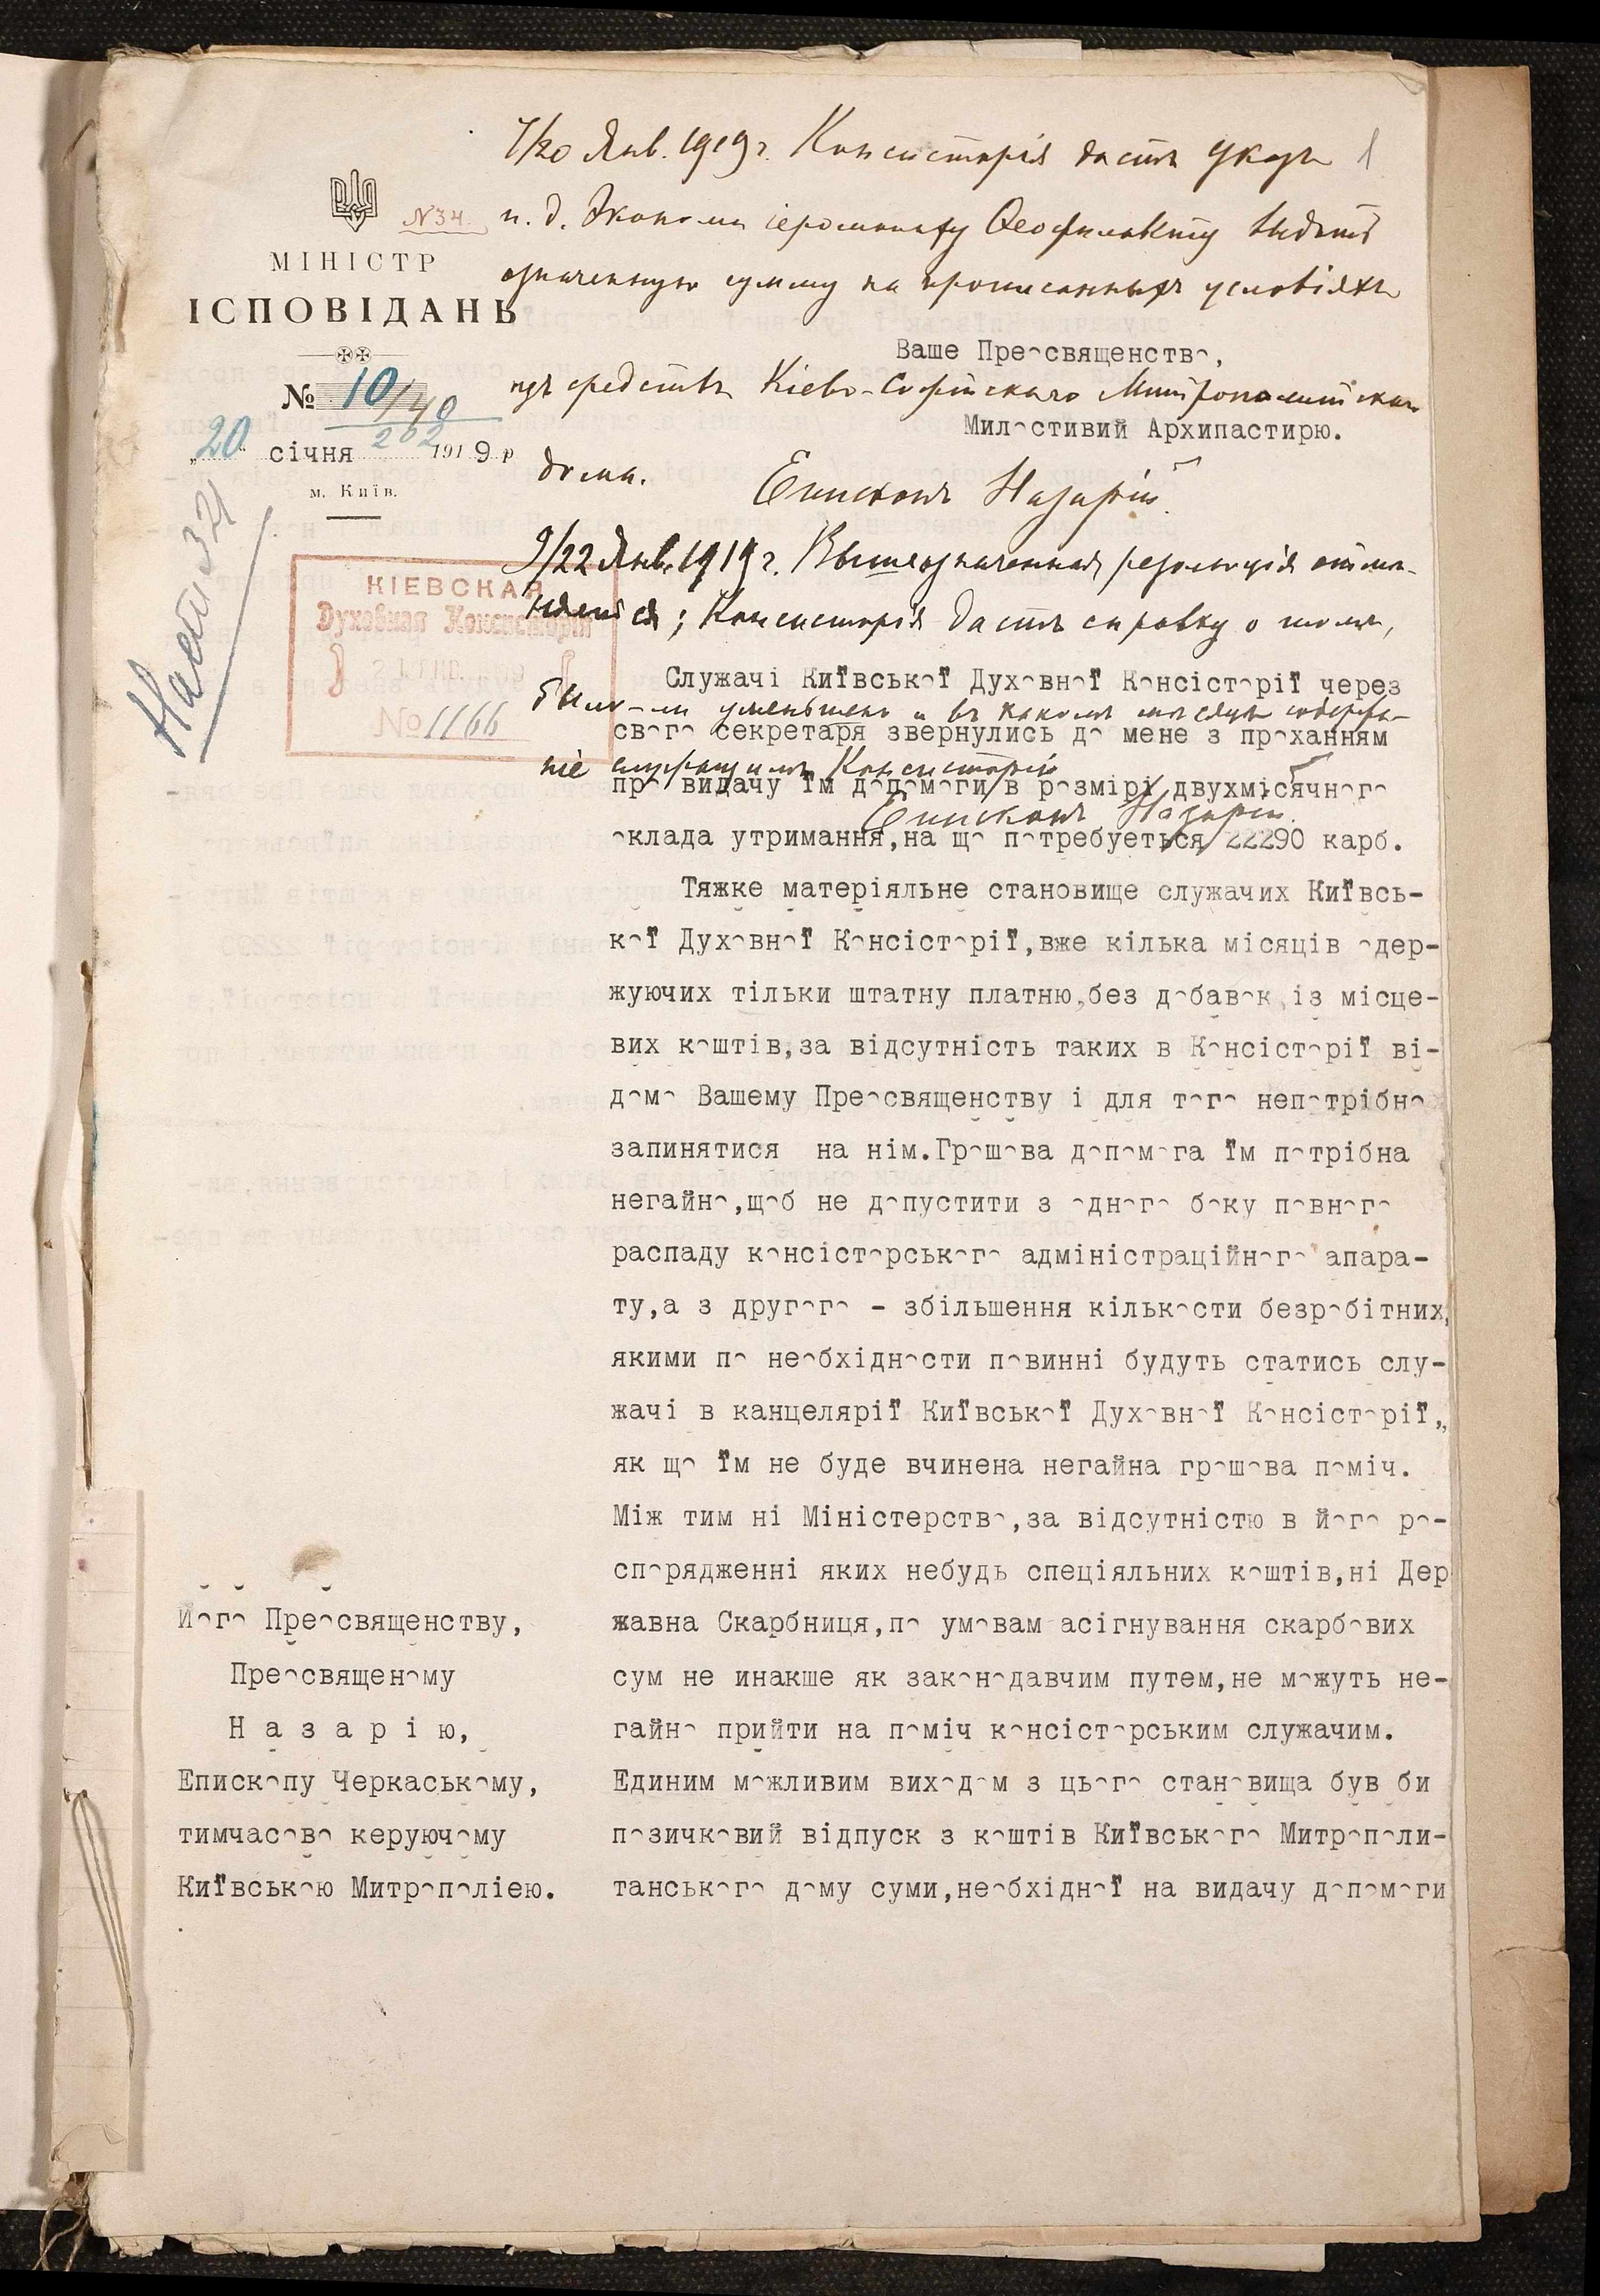 7/20 Янв. 1919 г. Консисторія дастъ указъ 1
и. д. Эконома іеромонаху Ѳеофилакту выдать
означенную сумму на прописанныхъ условіяхъ
изъ средствъ Кіево-Софійскаго Митрополитскаго
дома.
Епископъ Назарій.
9/22 Янв. 1919 г. Вышеозначенная резолюція отмѣ-
няется; Консисторія дастъ справку о томъ,
было-ли уменьшено и въ какомъ мѣсяцѣ содержа-
ніе служащимъ Консисторіи
Епископъ Назарій.
№ 34
МІНІСТР
ІСПОВІДАНЬ
№ 10/40
202
„20" січня 1919 р
м. Київ.
КІЕВСКАЯ
Духовная Консисторія
№ 1166
Ваше Преосвященство,
Милостивий Архипастирю.
Служачі Київської Духовної Консісторії через
свого секретаря звернулись до мене з проханням
про видачу їм допомоги в розмірі двухмісячного
оклада утримання,на що потребується 22290 карб.
Тяжке матеріяльне становище служачих Київсь-
кої Духовної Консісторії,вже кілька місяців одер-
жуючих тільки штатну платню,без добавок із місце-
вих коштів,за відсутність таких в Консісторії ві-
домо Вашему Преосвященству і для того непотрібно
запинятися на нім.Грошова допомога їм потрібна
негайно,щоб не допустити з одного боку повного
распаду консісторського адміністраційного апара-
ту,а з другого - збільшення кількости безробітних,
якими по необхідности повинні будуть статись слу-
жачі в канцелярії Київської Духовної Консісторії,
як що їм не буде вчинена негайна грошова поміч.
Між тим ні Міністерство,за відсутністю в його ро-
спорядженні яких небудь спеціяльних коштів,ні Дер
жавна Скарбниця,по умовам асігнування скарбових
сум не инакше як законодавчим путем,не можуть не-
гайно прийти на поміч консісторським служачим.
Единим можливим виходом з цього становища був би
позичковий відпуск з коштів Київського Митрополи-
танського дому суми,необхідної на видачу допомоги
Його Преосвященству,
Преосвященому
Назарію,
Епископу Черкаському,
тимчасово керуючому
Київською Митрополіею.